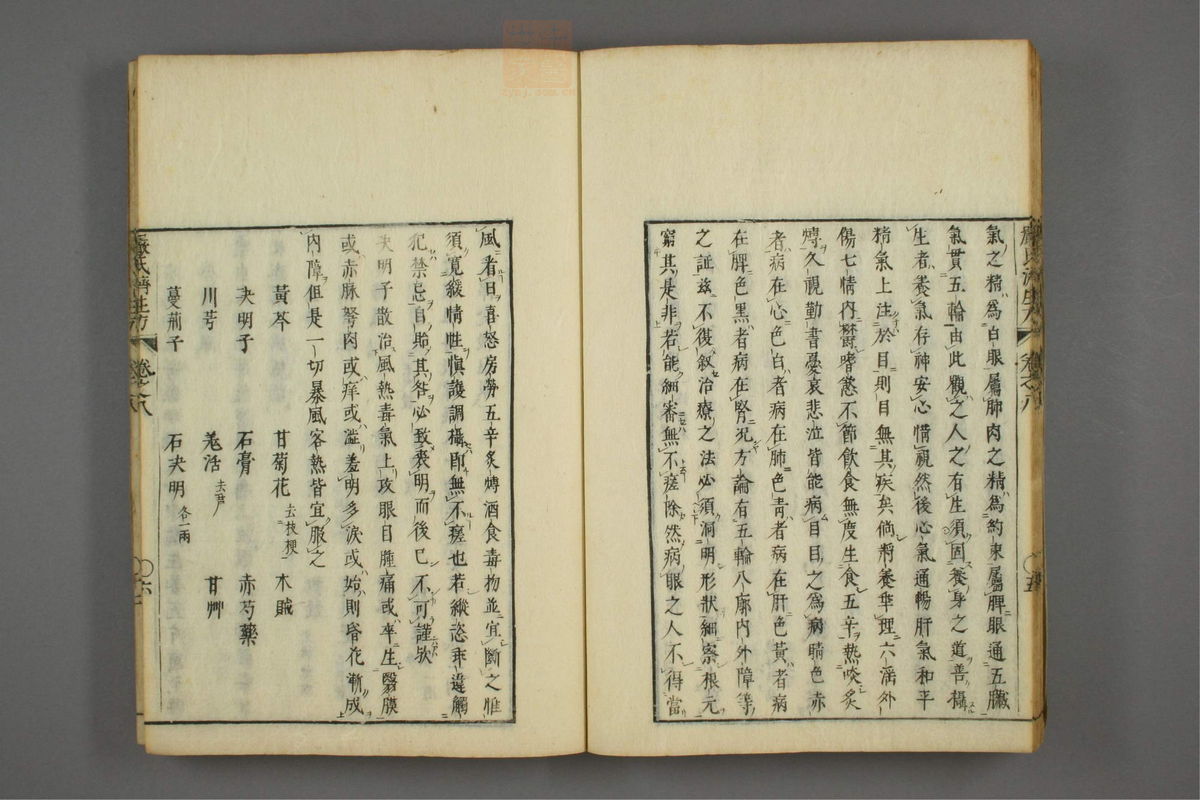 氣之精爲白眼屬肺肉之精爲約束屬脾眼通五臟
氣貫五輪由此觀之人之有生須固養身之道善攝
生者養氣存神安心惜視然後心氣通暢肝氣和平
精氣上注於目則目無其疾矣倘將養乖理六淫外
傷七情內鬱嗜慾不節飲食無度生食五辛熱啖炙
煿久視勤書憂哀悲泣皆能病目目之爲病睛色赤
者病在心色白者病在肺色靑者病在肝色黃者病
在脾色黑者病在腎況方論有五輪八廓內外障等
之証兹不復叙治療之法必須洞明形狀細察根元
窮其是非若能細審無不瘥除然病眼之人不得當
嚴氏濟生方 卷之八 五
風看日喜怒房勞五辛炙煿酒食毒物並宜斷之惟
須寬緩情性愼護調攝卽無不瘥也若縱恣乖違觸
犯禁忌自貽其咎必致喪明而後已不可謹歟
决明子散治風熱毒氣上攻眼目腫痛或卒生翳膜
或赤脉胬肉或痒或澁羞明多淚或始則昏花漸成
內障但是一切暴風客熱皆宜服之
黃芩 甘菊花去枝梗 木賊
决明子 石膏 赤芍藥
川芎 羌活去芦 甘艸
蔓荊子 石决明各一兩
嚴氏濟生方 卷之八 六